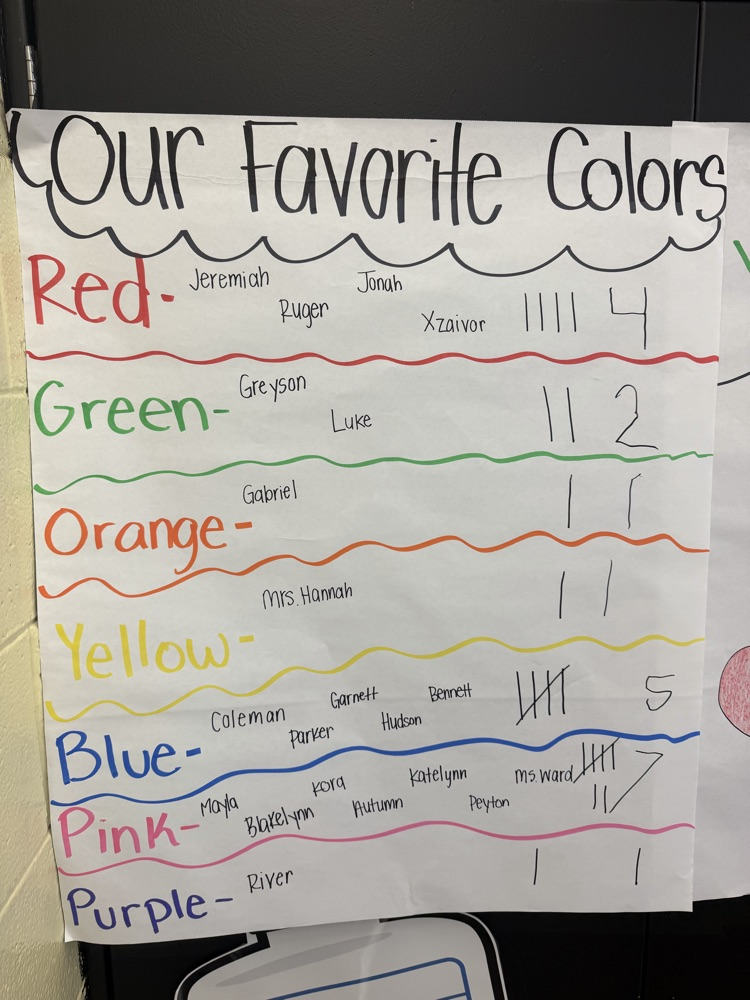 Our Favorite Colors
Red- Jeremiah Ruger Jonah Xzaivor 4
Green- Greyson Luke 2
Orange- Gabriel 1
Yellow- Mrs. Hannah 1
Blue- Coleman Parker Garnett Hudson Bennett 5
Pink- Mayla Blakelynn Kora Autumn Katelynn Peyton Ms. Ward 7
Purple- River 1